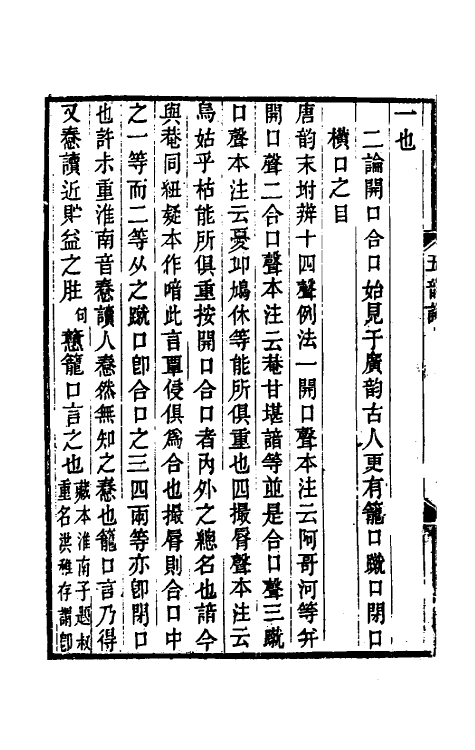 一也
二論開口合口始見于廣韵古人更有籠口蹴口閉口
橫口之目
唐韵末坿辨十四聲例法一開口聲本注云阿哥河等幷
開口聲二合口聲本注云菴甘堪諳等並是合口聲三蹴
口聲本注云憂丩鳩休等能所俱重也四撮脣聲本注云
烏姑乎枯能所俱重按開口合口者內外之總名也諳今
與菴同紐疑本作喑此言覃侵俱爲合也撮脣則合口中
之一等而二等从之蹴口卽合口之三四兩等亦卽閉口
也許未重淮南音惷讀人惷然無知之惷也籠口言乃得
又惷讀近貯益之胜句戇籠口言之也藏本淮南子題叔
重名洪稚存謂卽
五韵論